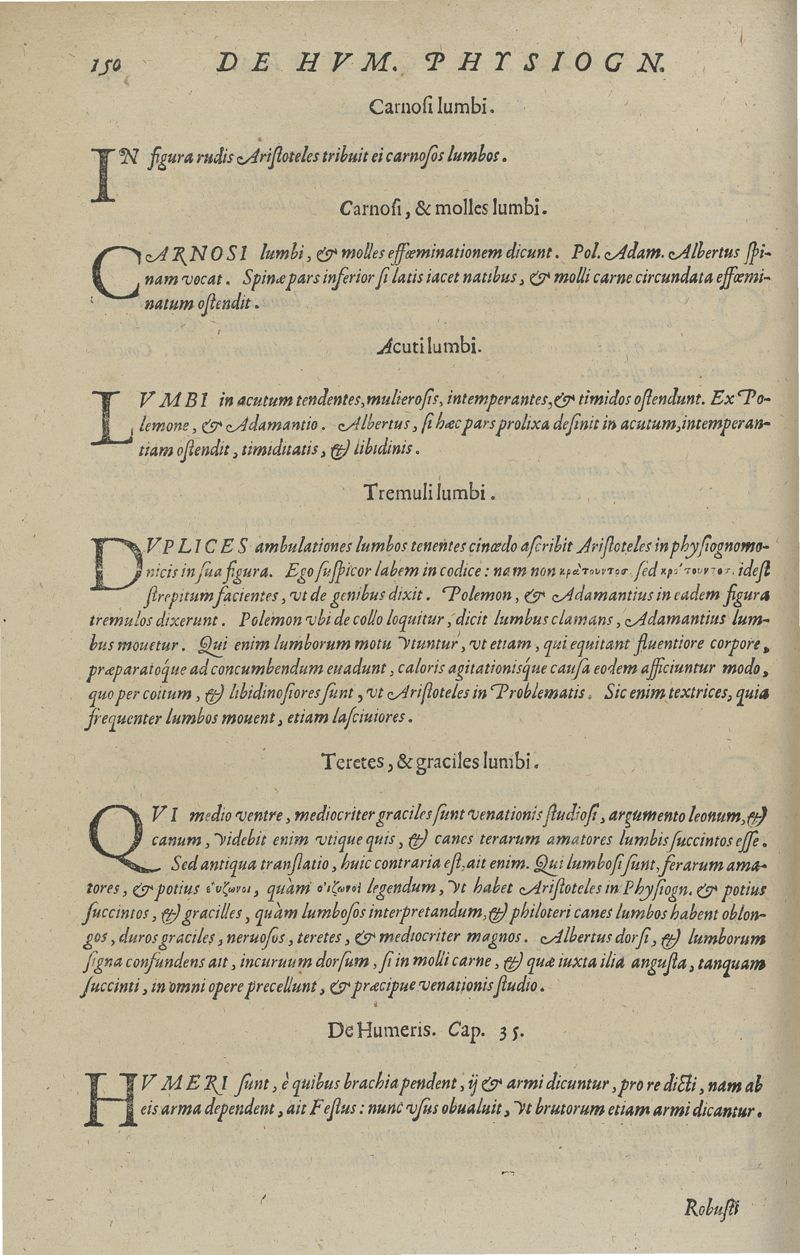 150 DE HVM. PHYSIOGN.
Carnoſi lumbi.
IN figura rudis Ariſtoteles tribuit ei carnoſos lumbos.
Carnoſi, & molles lumbi.
CARNOSI lumbi, & molles effœminationem dicunt. Pol. Adam. Albertus ſpi-
nam vocat. Spinæ pars inferior ſi latis iacet natibus, & molli carne circundata effœmi-
natum oſtendit.
Acuti lumbi.
LVMBI in acutum tendentes, mulieroſis, intemperantes, & timidos oſtendunt. Ex Po-
lemone, & Adamantio. Albertus, ſi hæc pars prolixa deſinit in acutum, intemperan-
tiam oſtendit, timiditatis, & libidinis.
Tremuli lumbi.
DVPLICES ambulationes lumbos tenentes cinædo aſcribit Ariſtoteles in phyſiognomo-
nicis in ſua figura. Ego ſuſpicor labem in codice: nam non κρατουντοσ ſed ideſt
ſtrepitum facientes, vt de genibus dixit. Polemon, & Adamantius in eadem figura
tremulos dixerunt. Polemon vbi de collo loquitur, dicit lumbus clamans, Adamantius lum-
bus mouetur. Qui enim lumborum motu vtuntur, vt etiam, qui equitant fluentiore corpore,
præparatoque ad concumbendum euadunt, caloris agitationisque cauſa eodem afficiuntur modo,
quo per coitum, & libidinoſiores ſunt, vt Ariſtoteles in Problematis. Sic enim textrices, quia
frequenter lumbos mouent, etiam laſciuiores.
Teretes, & graciles lumbi.
QVI medio ventre, mediocriter graciles ſunt venationis ſtudioſi, argumento leonum, &
canum, videbit enim vtique quis, & canes terarum amatores lumbis ſuccintos eſſe.
Sed antiqua tranſlatio, huic contraria eſt, ait enim. Qui lumboſi ſunt, ferarum ama-
tores, & potius quàm legendum, vt habet Ariſtoteles in Phyſiogn. & potius
ſuccintos, & gracilles, quàm lumboſos interpretandum, & philoteri canes lumbos habent oblon-
gos, duros graciles, neruoſos, teretes, & mediocriter magnos. Albertus dorſi, & lumborum
ſigna confundens ait, incuruum dorſum, ſi in molli carne, & quæ iuxta ilia anguſta, tanquam
ſuccinti, in omni opere precellunt, & præcipue venationis ſtudio.
De Humeris. Cap. 35.
HVMERI ſunt, è quibus brachia pendent, ij & armi dicuntur, pro re dicti, nam ab
eis arma dependent, ait Feſtus: nunc vſus obualuit, vt brutorum etiam armi dicantur.
Robuſti